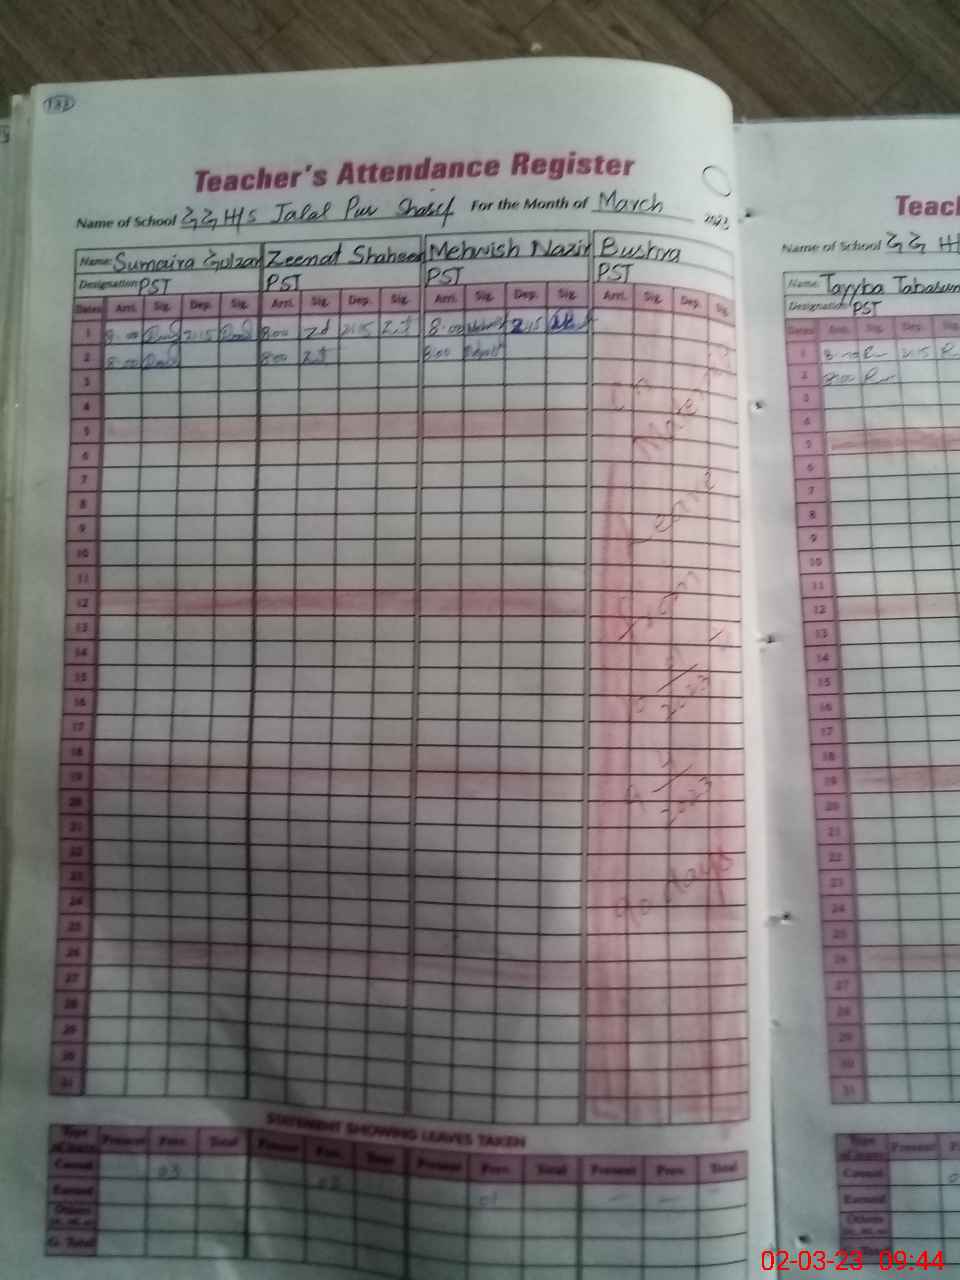 132
Teacher's Attendance Register
Name of School GGH/S Jalal Pur Sharif For the Month of March 2023
Name: Sumaira Gulzar Zeenat Shaheen Mehwish Nazir Bushra
Designation PST PST PST PST
Dates Arri. Sig. Dep. Sig. Arri. Sig. Dep. Sig. Arri. Sig. Dep. Sig. Arri. Sig. Dep. Sig.
1 8:00 2:15 8:00 2:15 8:00 2:15
2 8:00 8:00 8:00
3
4
5
6
7
8
9
10
11
12
13
14
15
16
17
18
19
20
21
22
23
24
25
26
27
28
29
30
31
On
Maternity
Leave
From
2023
2023
90 days
STATEMENT SHOWING LEAVES TAKEN
Present Prev. Total Present Prev. Total Present Prev. Total Present Prev. Total
Casual 03 02 01
Earned
Others
G. Total
Teac
Name of School GGH
Name: Tayyba Tabasum
Designation PST
Dates Arri. Sig. Dep. S
1 8:00 2:15
2 8:00
3
4
5
6
7
8
9
10
11
12
13
14
15
16
17
18
19
20
21
22
23
24
25
26
27
28
29
30
31
Present
Casual
Earned
Others
02-03-23 09:44